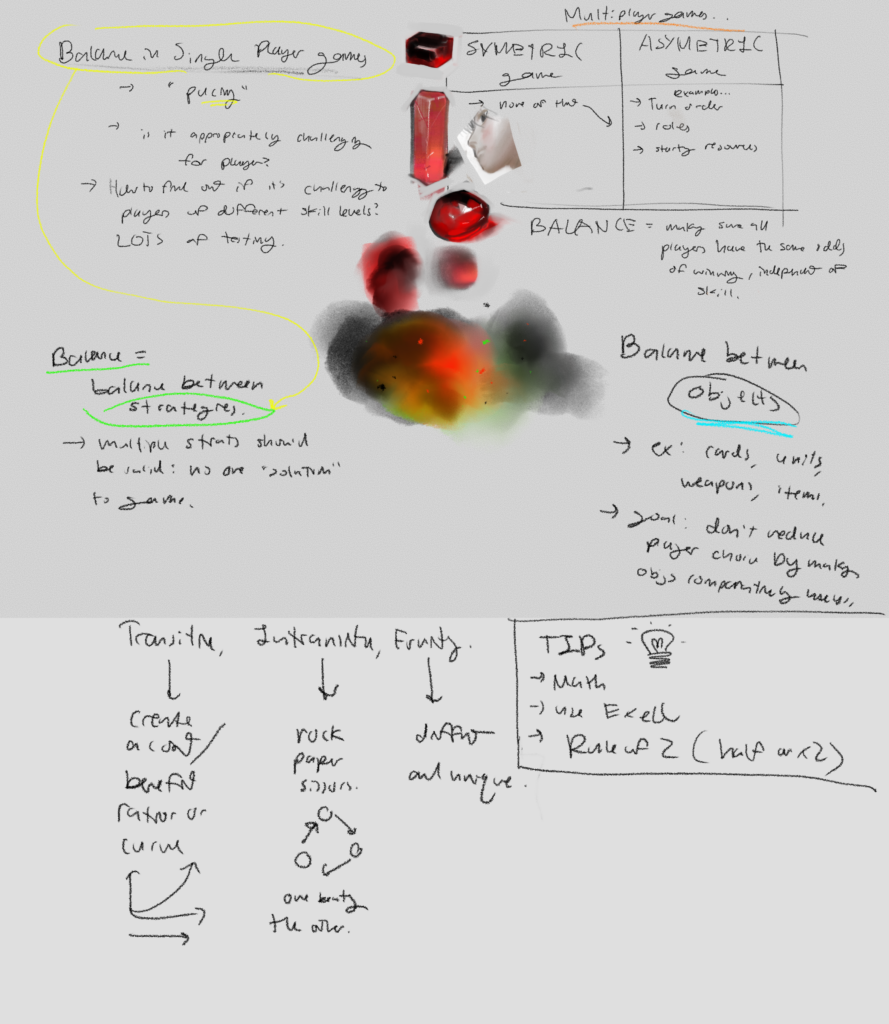 Balance in Single Player games
→ "pacing"
→ is it appropriately challenging
for player?
→ How to find out if it's challengg to
players of different skill levels?
LOTS of testing.
Multiplayer games..
SYMETRIC
game
→ none of that
ASYMETRIC
game
examples...
→ Turn order
→ roles
→ startg resources
BALANCE = makg sure all
players have the same odds
of winning, independent of
skill.
Balance =
balance between
strategies.
→ multiple strats should
be valid: no one "solution"
to game.
Balance between
objects
→ ex: cards, units,
weapons, items.
→ goal: don't reduce
player choice by makg
objs comparatively useless.
Transitive, Intransitive, Fruity.
create
a cost/
benefit
ratio or
curve
rock
paper
scissors.
one beatg
the other.
different
and unique.
TIPs
→ Math
→ use Excell
→ Rule of 2 (half or x2)